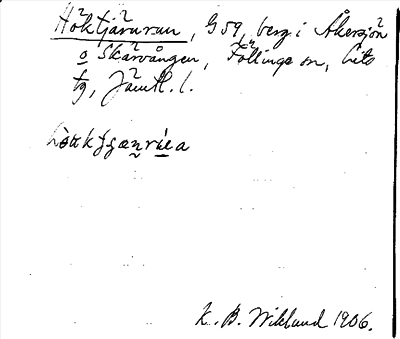 Höktjärurun, G 59, berg i Åkersjön
o Skärvången, Föllinge sn, Lits
tg, Jämtl. l.
K. B. Wiklund 1906.